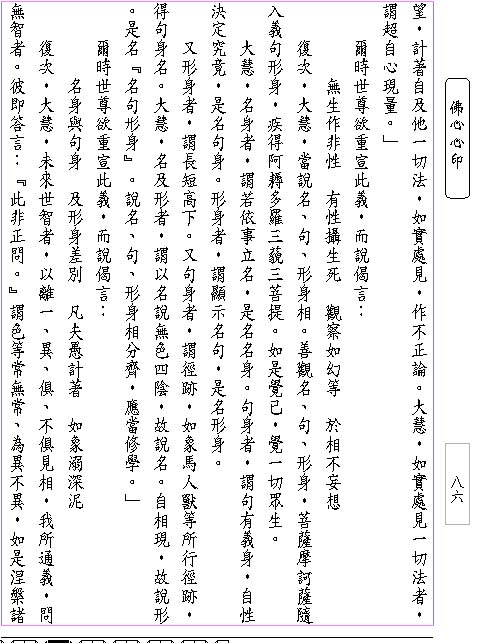 佛心心印
八六
望，計著自及他一切法，如實處見，作不正論。大慧，如實處見一切法者，
謂超自心現量。」
爾時世尊欲重宣此義，而說偈言：
無生作非性　有性攝生死　觀察如幻等　於相不妄想
復次，大慧，當說名、句、形身相。善觀名、句、形身，菩薩摩訶薩隨
入義句形身，疾得阿耨多羅三藐三菩提。如是覺已，覺一切眾生。
大慧，名身者，謂若依事立名，是名名身。句身者，謂句有義身，自性
決定究竟，是名句身。形身者，謂顯示名句，是名形身。
又形身者，謂長短高下。又句身者，謂徑跡，如象馬人獸等所行徑跡，
得句身名。大慧，名及形者，謂以名說無色四陰，故說名。自相現，故說形
。是名『名句形身』。說名、句、形身相分齊，應當修學。」
爾時世尊欲重宣此義，而說偈言：
名身與句身　及形身差別　凡夫愚計著　如象溺深泥
復次，大慧，未來世智者，以離一、異、俱、不俱見相，我所通義，問
無智者。彼即答言：『此非正問。』謂色等常無常、為異不異，如是涅槃諸